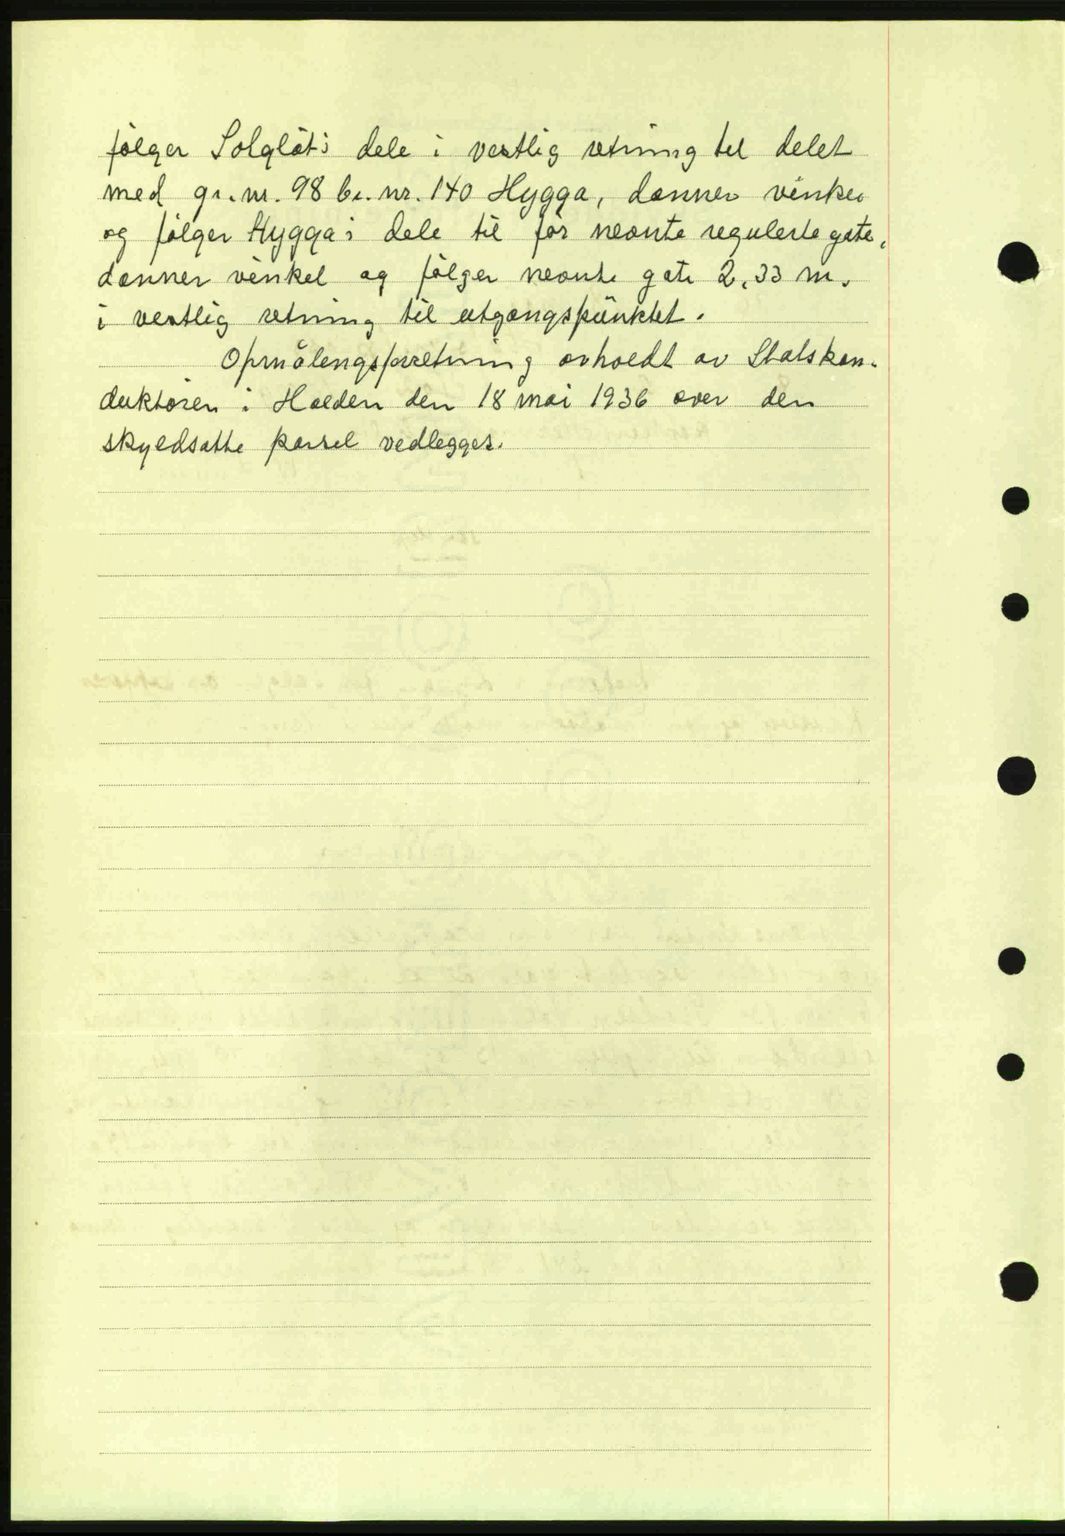 følger Solgløt's dele i vestlig retning til delet
med gr. nr. 98 br. nr. 140 Hygga, danner vinkel
og følger Hygga's dele til før nevnte regulerte gate,
danner vinkel og følger nevnte gate 2,33 m.
i vestlig retning til utgangspunktet.
Opmålingsforretning avholdt av Statskon-
duktøren i Halden den 18 mai 1936 over den
skyldsatte parsel vedlegges.